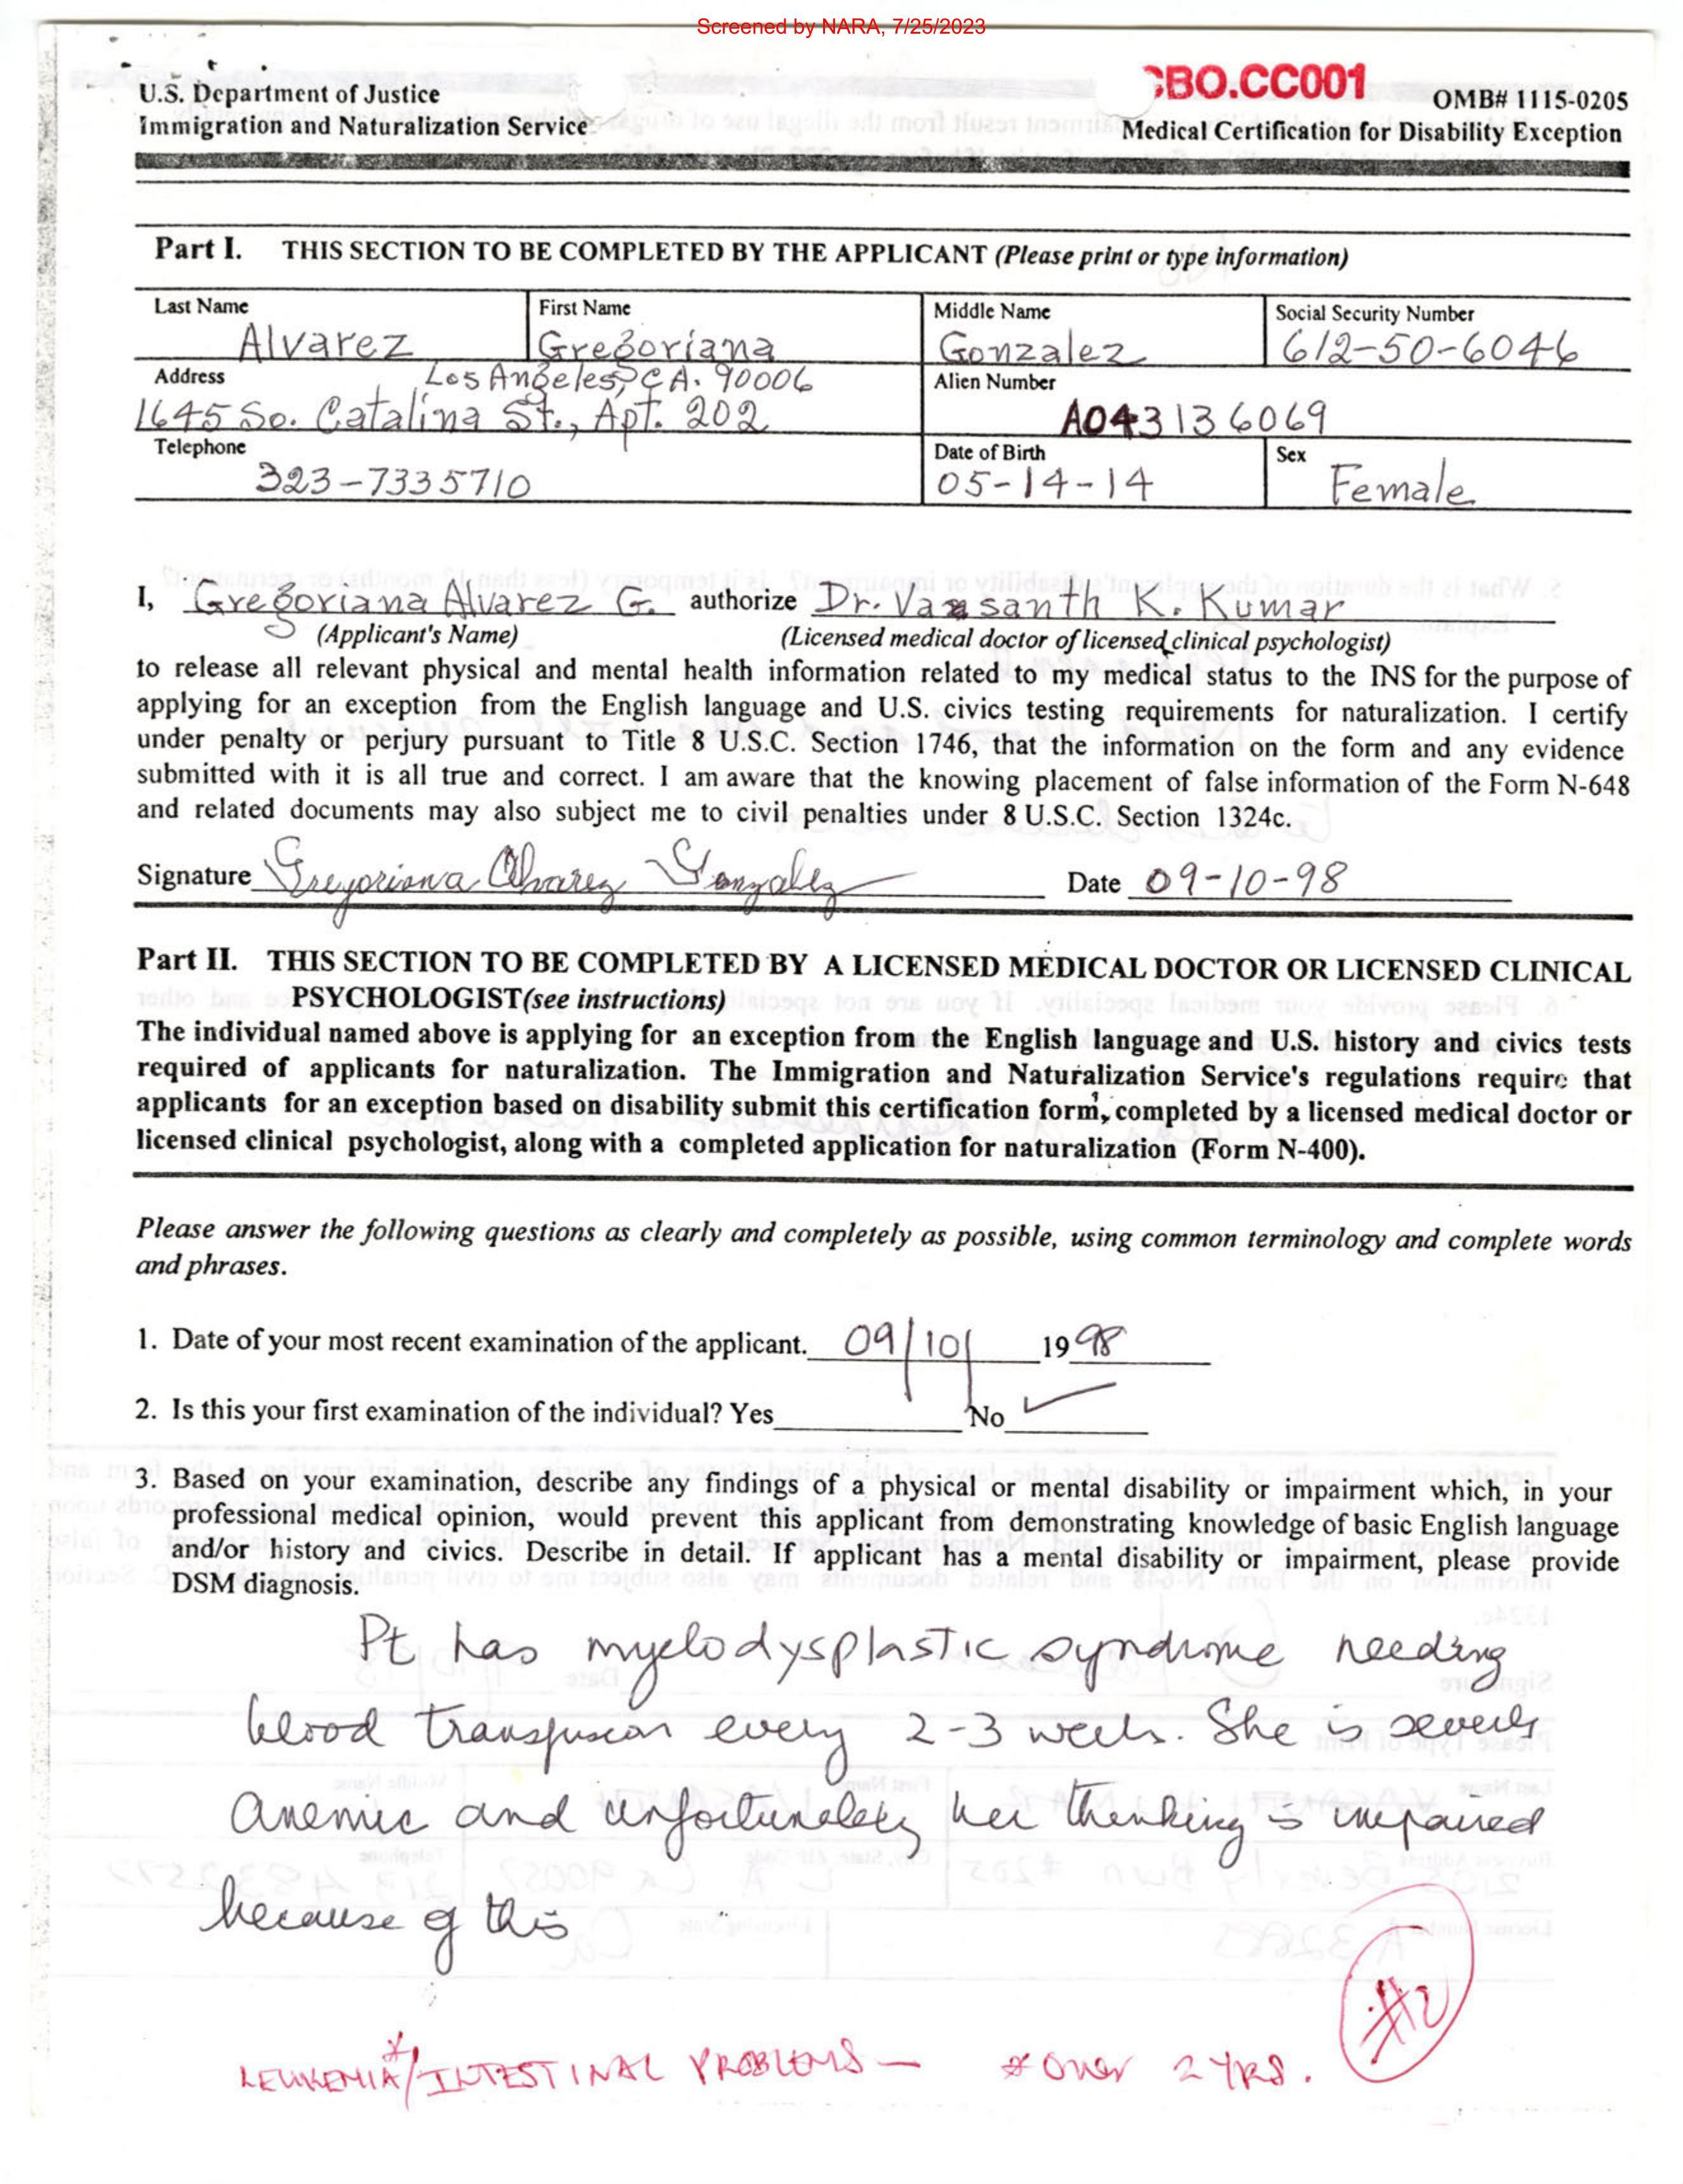 Screened by NARA, 7/25/2023
U.S. Department of Justice
Immigration and Naturalization Service
BO.CC001
OMB# 1115-0205
Medical Certification for Disability Exception
Part I. THIS SECTION TO BE COMPLETED BY THE APPLICANT (Please print or type information)
Last Name First Name Middle Name Social Security Number
Alvarez Gregoriana Gonzalez 612-50-6046
Address Los Angeles, CA. 90006 Alien Number
1645 So. Catalina St., Apt. 202 A043136069
Telephone Date of Birth Sex
323-7335710 05-14-14 Female
I, Gregoriana Alvarez G. authorize Dr. Vasanth K. Kumar
(Applicant's Name) (Licensed medical doctor of licensed clinical psychologist)
to release all relevant physical and mental health information related to my medical status to the INS for the purpose of
applying for an exception from the English language and U.S. civics testing requirements for naturalization. I certify
under penalty or perjury pursuant to Title 8 U.S.C. Section 1746, that the information on the form and any evidence
submitted with it is all true and correct. I am aware that the knowing placement of false information of the Form N-648
and related documents may also subject me to civil penalties under 8 U.S.C. Section 1324c.
Signature Gregoriana Alvarez Gonzalez Date 09-10-98
Part II. THIS SECTION TO BE COMPLETED BY A LICENSED MEDICAL DOCTOR OR LICENSED CLINICAL
PSYCHOLOGIST(see instructions)
The individual named above is applying for an exception from the English language and U.S. history and civics tests
required of applicants for naturalization. The Immigration and Naturalization Service's regulations require that
applicants for an exception based on disability submit this certification form, completed by a licensed medical doctor or
licensed clinical psychologist, along with a completed application for naturalization (Form N-400).
Please answer the following questions as clearly and completely as possible, using common terminology and complete words
and phrases.
1. Date of your most recent examination of the applicant. 09/10/ 1998
2. Is this your first examination of the individual? Yes No ✓
3. Based on your examination, describe any findings of a physical or mental disability or impairment which, in your
professional medical opinion, would prevent this applicant from demonstrating knowledge of basic English language
and/or history and civics. Describe in detail. If applicant has a mental disability or impairment, please provide
DSM diagnosis.
Pt has myelodysplastic syndrome needing
blood transfusion every 2-3 weeks. She is severely
anemic and unfortunately her thinking is impaired
because of this
#2
LEUKEMIA*/INTESTINAL PROBLEMS — * OVER 2 YRS.